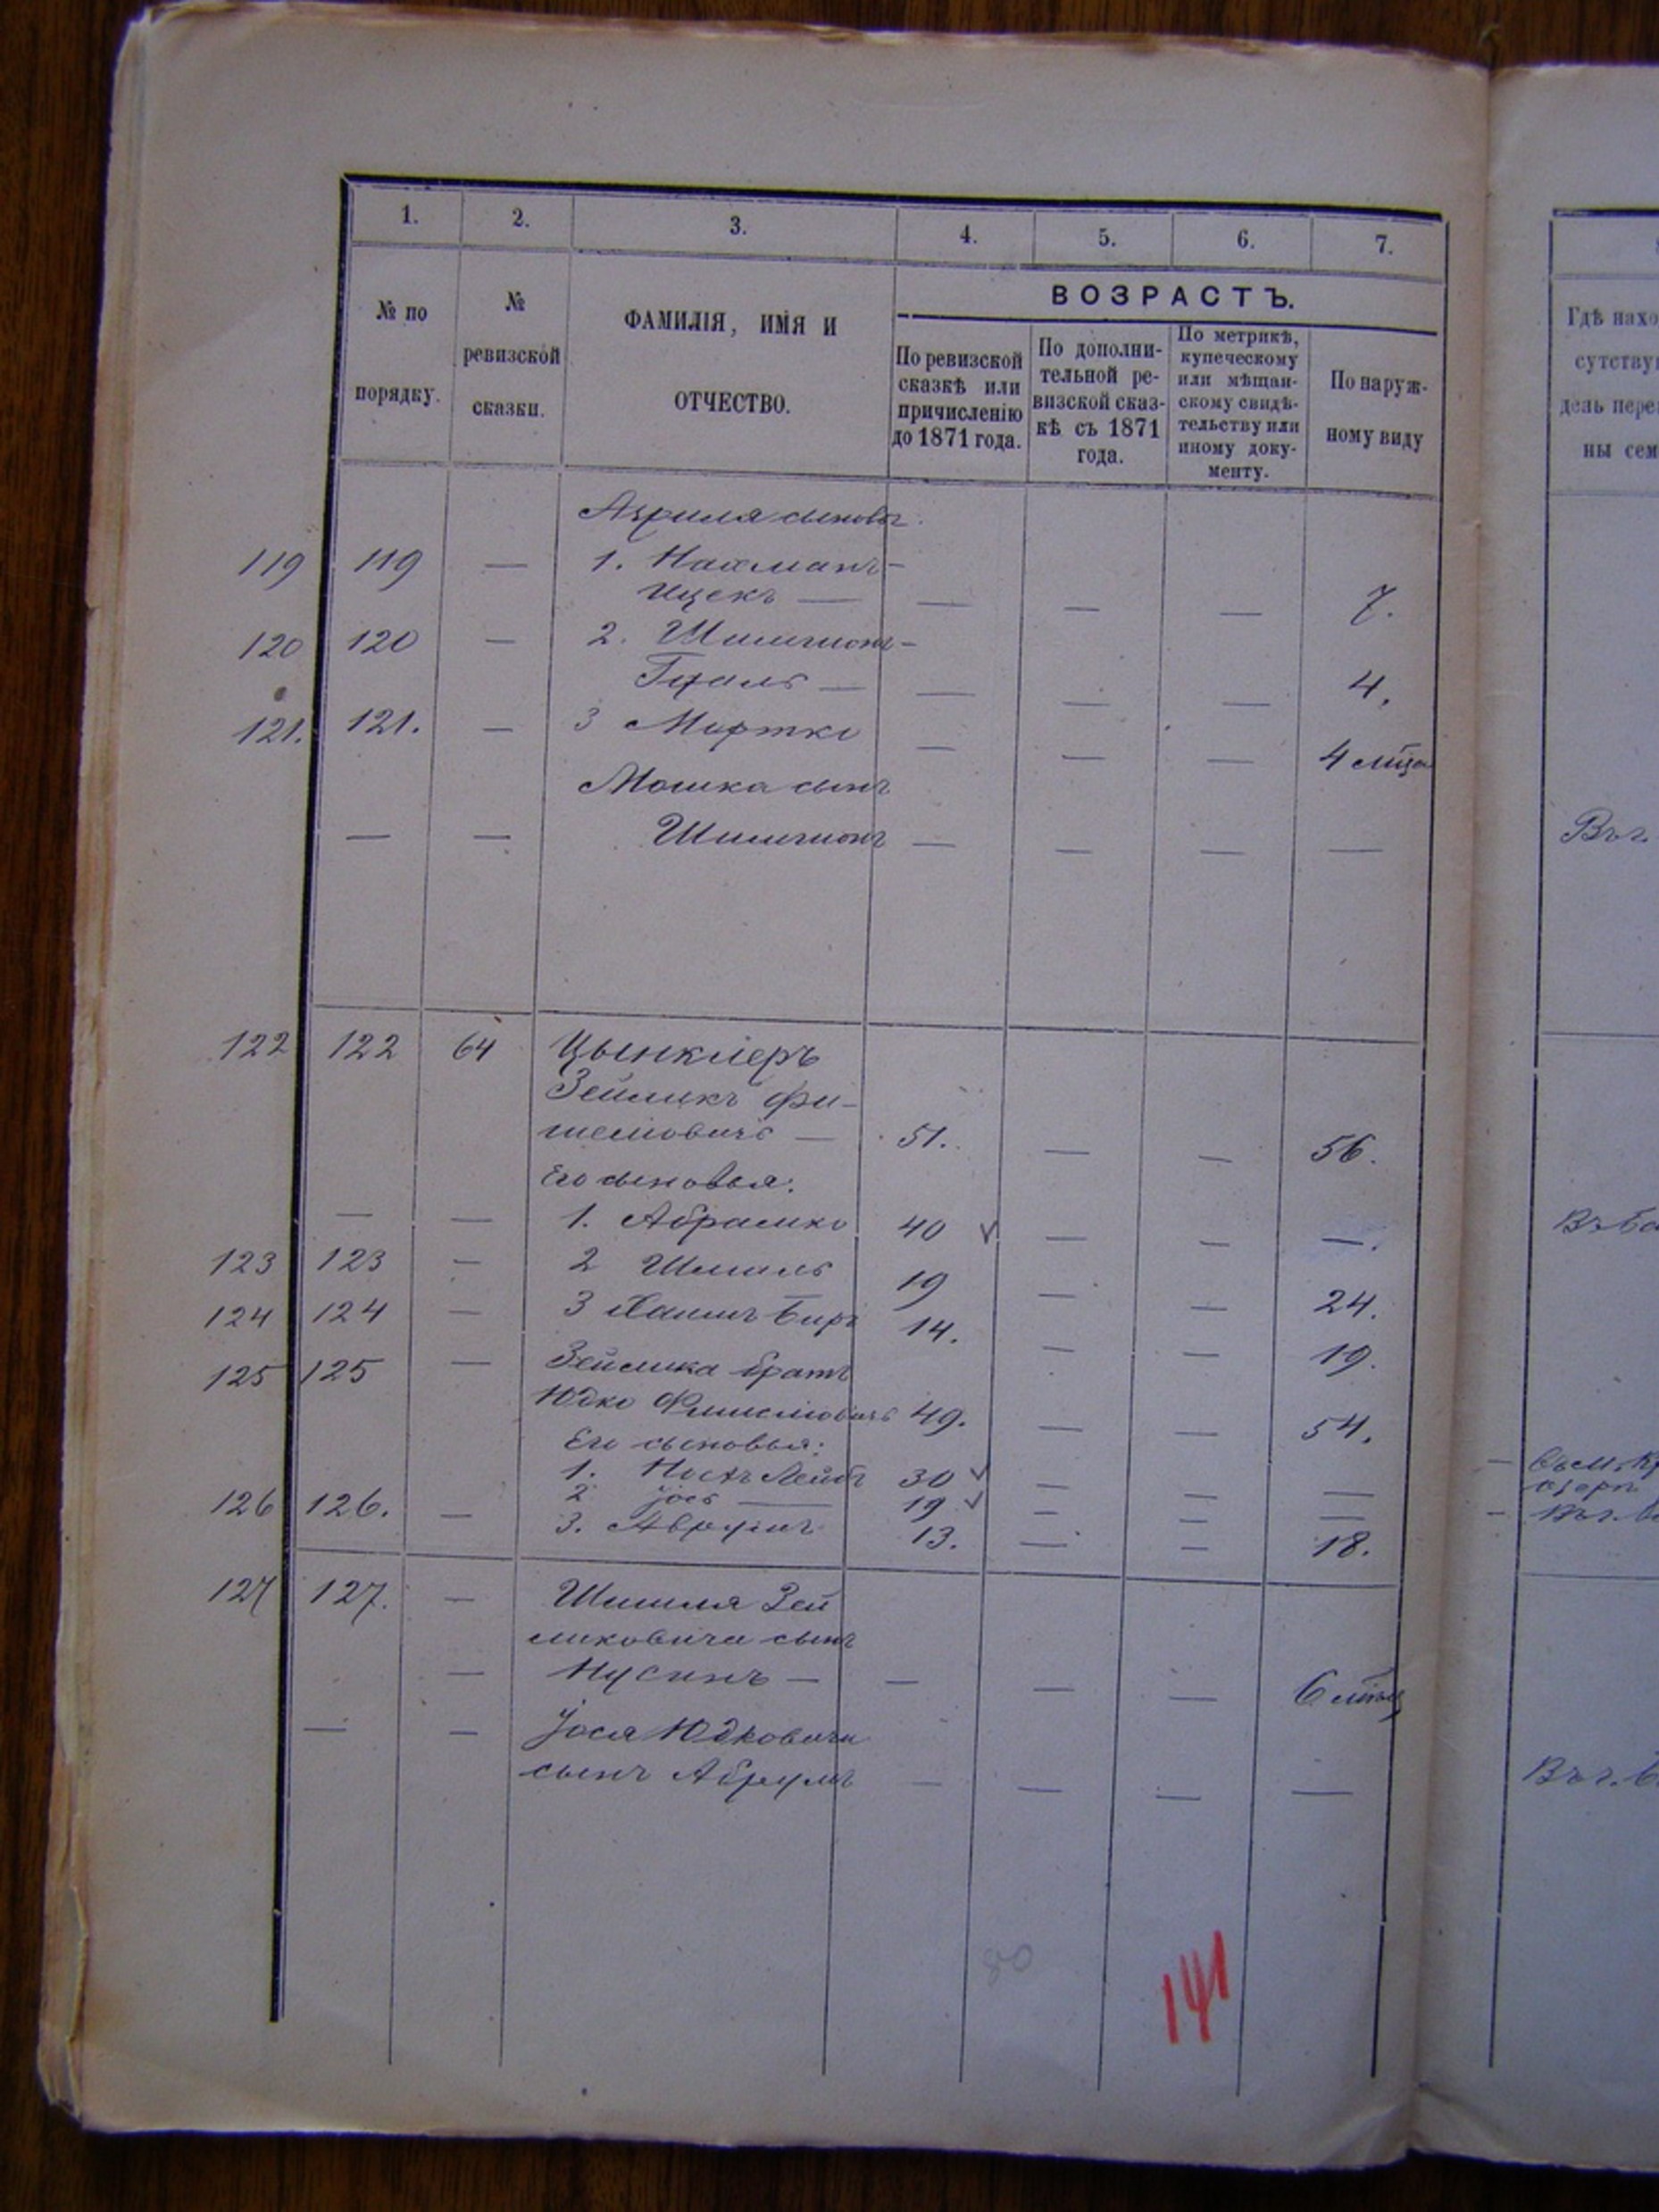 1. 2. 3. 4. 5. 6. 7.
№ по порядку.
№ ревизской сказки.
ФАМИЛІЯ, ИМЯ И ОТЧЕСТВО.
ВОЗРАСТЪ.
По ревизской сказкѣ или причисленію до 1871 года.
По дополни-тельной ре-визской сказ-кѣ съ 1871 года.
По метрикѣ, купеческому или мѣщан-скому свидѣ-тельству или иному доку-менту.
По наруж-ному виду
Азриля сыновья
119 119 — 1. Нахманъ-
Ицекъ — — — — 7.
120 120 — 2. Шлиомъ-
Гцаль — — — — 4.
121. 121. — 3 Мортко — — — 4 мѣца
Мошка сынъ
— — Шлиомъ — — — —
122 122 64 Цынклеръ
Зейликъ Фи-
шелювичъ — 51. — — 56.
Его сыновья:
— — 1. Абрамко 40 — — —.
123 123 — 2 Шмаль 19 — — 24.
124 124 — 3 Хаимъ Беръ 14. — — 19.
125 125 — Зейлика братъ
Юдко Фишелювичъ 49. — — 54.
Его сыновья:
1. Лейбъ 30 — — —
2 Јось — 19 — — —
126 126. — 3. Аврумъ 13. — — 18.
127 127. — Шмиля Зей
ликовича сынъ
— Нусинъ — — — — 6 мѣсяц
— — Јося Юдковича
сынъ Абрумъ — — — —
80
141
Гдѣ нахо
сутству
день пере
ны сем
Въ г.
Въ г.